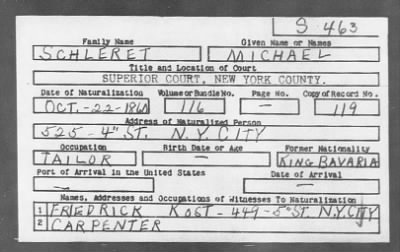 S-463
Family Name Given Name or Names
SCHLERET MICHAEL
Title and Location of Court
SUPERIOR COURT, NEW YORK COUNTY.
Date of Naturalization Volume or Bundle No. Page No. Copy of Record No.
OCT.-22-1860 116 — 119
Address of Naturalized Person
525-4"ST. N.Y. CITY
Occupation Birth Date or Age Former Nationality
TAILOR — KING BAVARIA
Port of Arrival in the United States Date of Arrival
— —
Names, Addresses and Occupations of Witnesses To Naturalization
1 FRIEDRICK KOST-449-5"ST. N.Y. CITY
2 CARPENTER